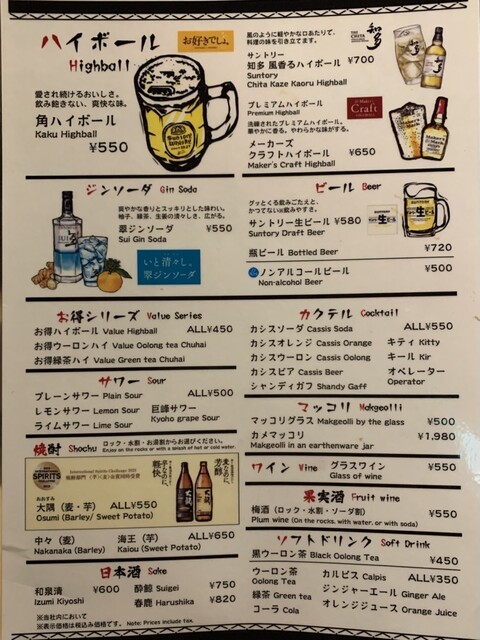 ハイボール
Highball
お好きでしょ。
愛され続けるおいしさ。
飲み飽きない、爽快な味。
角ハイボール
Kaku Highball
¥550
Suntory
Whisky
風のように軽やかな口あたりで、
料理の味を引き立てます。
THE CHITA
知多
サントリー
知多 風香るハイボール ¥700
Suntory
Chita Kaze Kaoru Highball
プレミアムハイボール
Premium Highball
Craft
洗練されたプレミアムハイボール。
華やかに香る、やわらかな味がする。
メーカーズ
クラフトハイボール ¥650
Maker's Craft Highball
ジンソーダ Gin Soda
爽やかな香りとスッキリとした味わい。
柚子、緑茶、生姜の清々しさ、広がる。
翠ジンソーダ ¥550
Sui Gin Soda
SUI
いと清々し。
翠ジンソーダ
ビール Beer
グッとくる飲みごたえと、
かつてない飲みやすさ。
サントリー生ビール ¥580
Suntory Draft Beer
生ビール
瓶ビール Bottled Beer ¥720
ノンアルコールビール ¥500
Non-alcohol Beer
お得シリーズ Value Series
お得ハイボール Value Highball ALL¥450
お得ウーロンハイ Value Oolong tea Chuhai
お得緑茶ハイ Value Green tea Chuhai
カクテル Cocktail
カシスソーダ Cassis Soda ALL¥550
カシスオレンジ Cassis Orange キティ Kitty
カシスウーロン Cassis Oolong キール Kir
カシスビア Cassis Beer オペレーター
シャンディガフ Shandy Gaff Operator
サワー Sour
プレーンサワー Plain Sour ALL¥500
レモンサワー Lemon Sour 巨峰サワー
ライムサワー Lime Sour Kyoho grape Sour
マッコリ Makgeolli
マッコリグラス Makgeolli by the glass ¥500
カメマッコリ ¥1.980
Makgeolli in an earthenware jar
焼酎 Shochu ロック・水割・お湯割からお選びください。
Enjoy on the rocks or with a splash of hot or cold water.
SPIRITS
International Spirits Challenge
おおすみ
大隅 (麦・芋) ALL¥550
Osumi (Barley/ Sweet Potato)
中々 (麦) 海王 (芋) ALL¥650
Nakanaka (Barley) Kaiou (Sweet Potato)
ワイン Wine グラスワイン ¥550
Glass of wine
果実酒 Fruit wine
梅酒 (ロック・水割・ソーダ割) ¥550
Plum wine (On the rocks, with water, or with soda)
日本酒 Sake
和泉清 ¥600 酔鯨 Suigei ¥750
Izumi Kiyoshi 春鹿 Harushika ¥820
※当社内において
※表示価格は税込み価格です。 Note: Prices include tax.
ソフトドリンク Soft Drink
黒ウーロン茶 Black Oolong Tea ¥450
ウーロン茶 カルピス Calpis ALL¥350
Oolong Tea ジンジャーエール Ginger Ale
緑茶 Green tea オレンジジュース Orange Juice
コーラ Cola